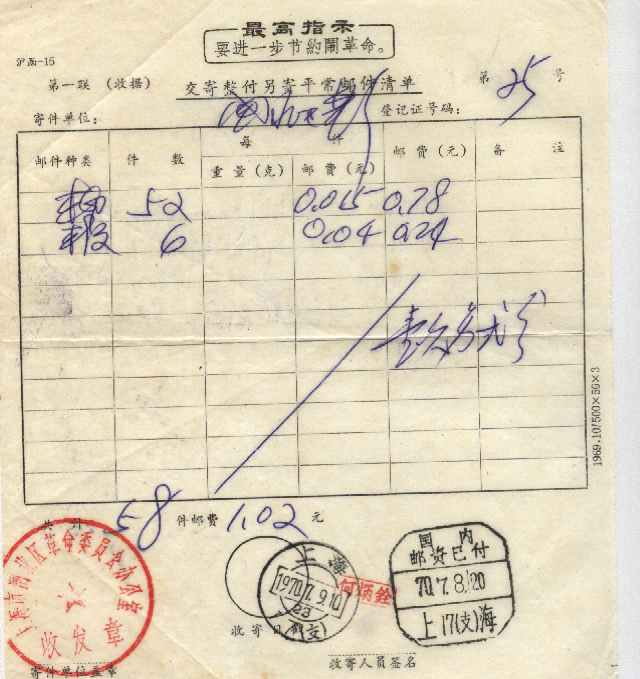 最高指示
要进一步节約闹革命。
沪函-15
第一联 (收据) 交寄整付另寄平常邮件清单 第 25 号
寄件单位: 登记证号码:
邮件种类 件数 每件 邮费(元) 备注
重量(克) 邮费(元)
52 0.015 0.78
6 0.04 0.24
1969.10/500×50×3
共计 58 件邮费 1.02 元
国内
邮资已付
70.7.8.20
上17(支)海
上海
1970.7.9.10
23
(支)
何炳銓
革命委员会办公室
收发章
收寄日
收寄人员签名
寄件单位盖章